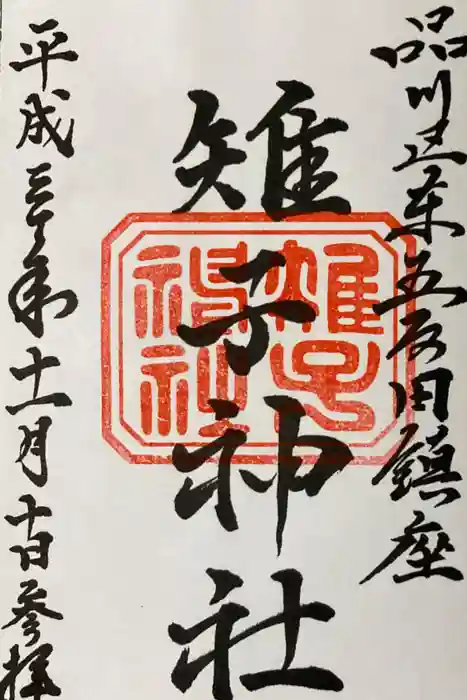 品川区東五反田鎮座
雉子神社
雉子神社
平成三十年十一月十日参拝